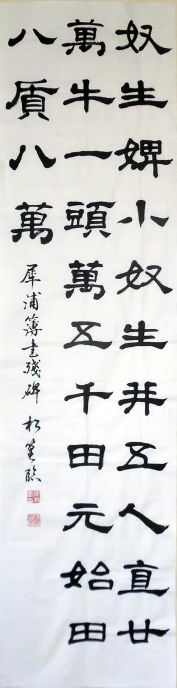 奴生婢小奴生并五人直廿
萬牛一頭萬五千田元始田
八質八萬
犀浦簿書殘碑 臨